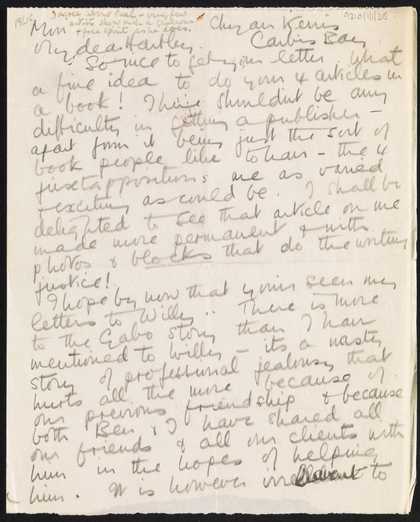 Mon Chy an Kerris
Carbis Bay
My dear Hartley.
So nice to get your letter. What
a fine idea to do your 4 articles in
a book! I think shouldn't be any
difficulty in getting a publisher –
apart from it being just the sort of
book people like to have – the 4
juxtappositions are as varied
& exciting as could be. I shall be
delighted to see that article on me
made more permanent & with
photos & blocks that do the writing
justice!
I hope by now that you've seen my
letters to Willy. There is more
to the Gabo story than I have
mentioned to Willy – its a nasty
story of professional jealousy that
hurts all the more because of
our previous friendship & because
both Ben & I have shared all
our friends & all our clients with
him in the hopes of helping
him. It is however to